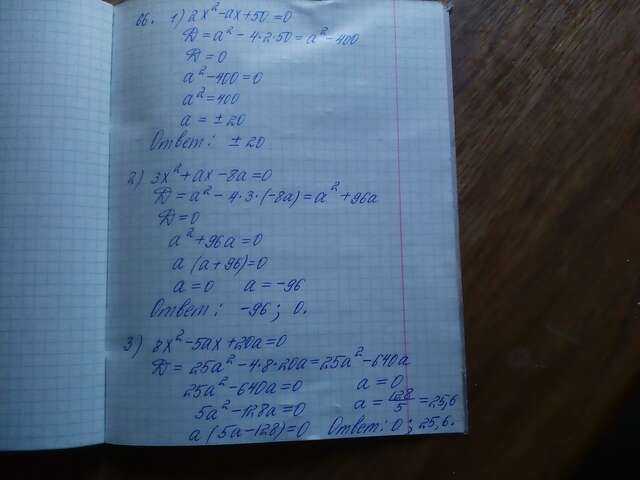 06. 1) 2x²-ax+50=0
D=a²-4·2·50=a²-400
D=0
a²-400=0
a²=400
a=±20
Ответ: ±20
2) 3x²+ax-8a=0
D=a²-4·3·(-8a)=a²+96a
D=0
a²+96a=0
a(a+96)=0
a=0 a=-96
Ответ: -96; 0.
3) 8x²-5ax+20a=0
D=25a²-4·8·20a=25a²-640a
25a²-640a=0 a=0
5a²-128a=0 a=128/5=25,6
a(5a-128)=0 Ответ: 0; 25,6.